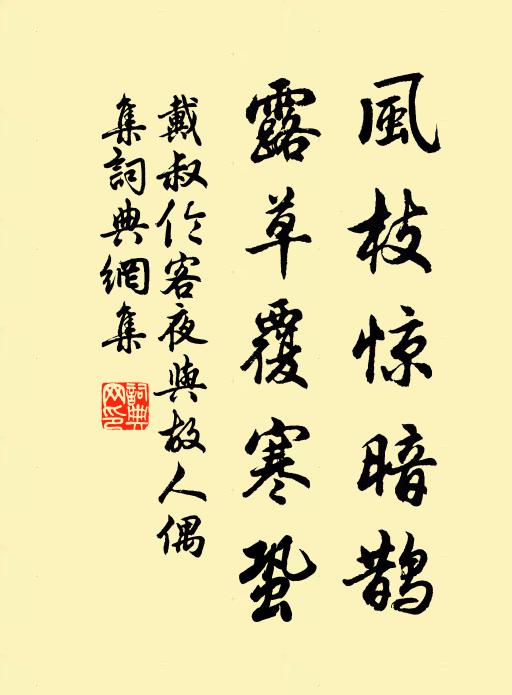 風枝惊暗鵲
露草覆寒蛩
戴叔伦客夜與故人偶
集詞典網集
詞典網印